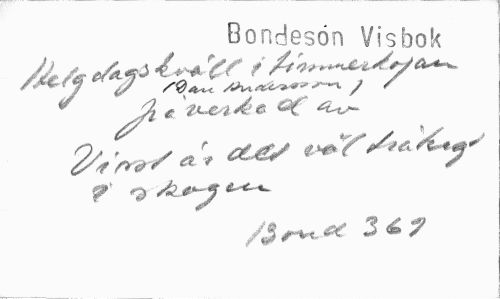 Bondeson Visbok
Helgdagskväll i timmerkojan
(Dan Andersson)
påverkad av
Visst är det väl tråkigt
i skogen
Bond 369